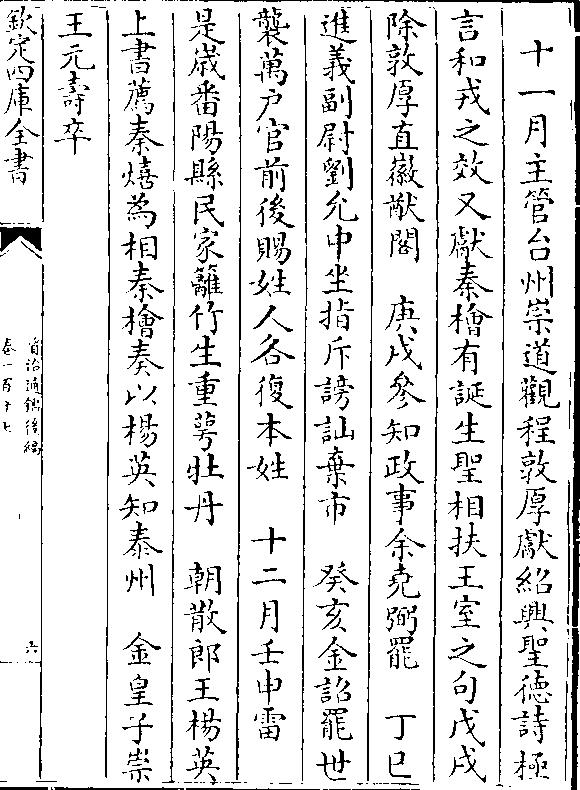 十一月主管台州崇道觀程敦厚獻紹興聖德詩極
言和戎之效又獻秦檜有誕生聖相扶王室之句戊戌
除敦厚直徽猷閣　庚戌參知政事余堯弼罷　丁巳
進義副尉劉允中坐指斥謗訕棄市　癸亥金詔罷世
襲萬户官前後賜姓人各復本姓　十二月壬申雷
是歲番陽縣民家籬竹生重萼牡丹　朝散郎王楊英
上書薦秦熺為相秦檜奏以楊英知泰州　金皇子崇
王元壽卒
欽定四庫全書
資治通鑑後編
卷一百十七
六